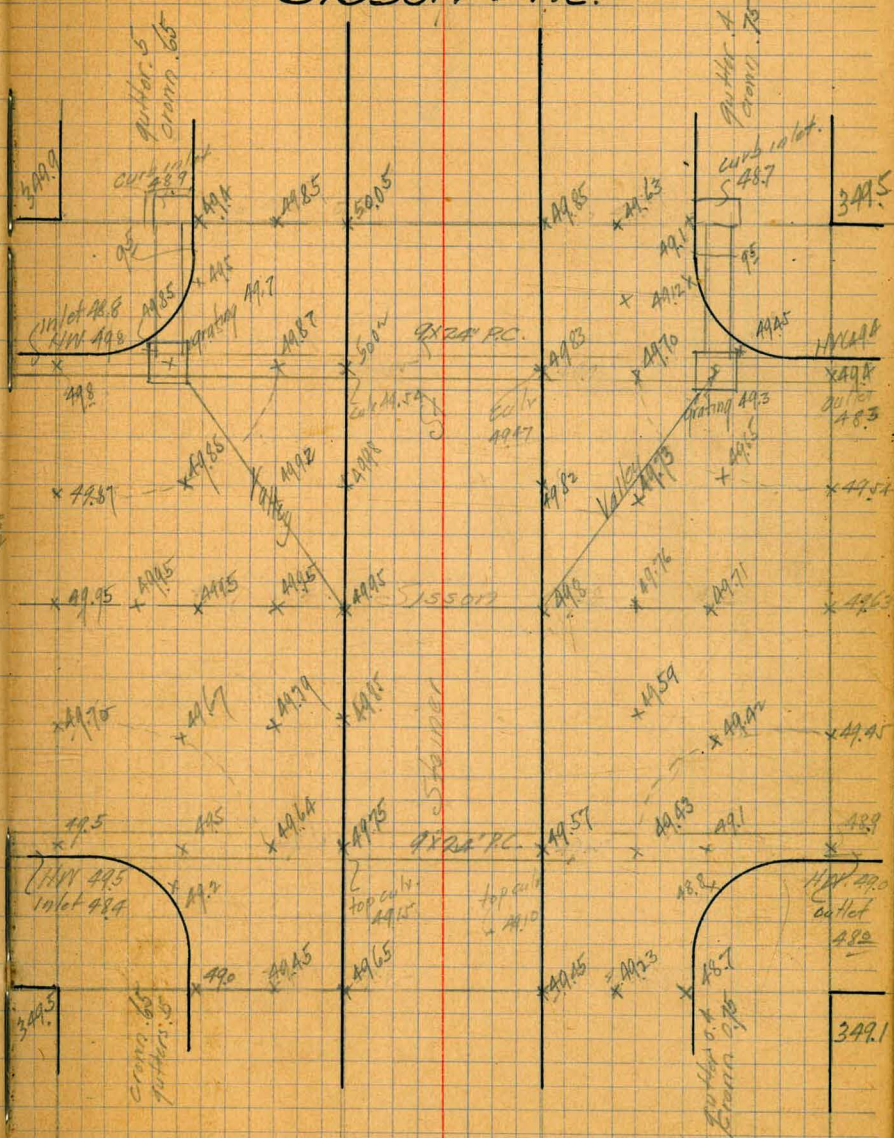 gutter .5
crown .65
gutter .4
crown .75
349.9
curb inlet
48.9
49.4
49.85
50.05
49.85
49.63
curb inlet.
48.7
349.5
95
49.5
49.1
95
49.12
Inlet 48.8
HW 49.8
49.85
grating 49.7
49.87
9X24" P.C.
49.83
49.70
49.45
HW 49.4
49.8
culv.
49.47
grating 49.3
49.4
outlet
48.3
49.87
49.85
Valley
49.92
49.98
49.82
Valley
49.73
49.65
49.95
49.95
49.95
49.95
49.95
Sisson
49.8
49.76
49.71
49.63
49.70
49.67
49.79
49.85
Steiner
49.59
49.42
49.45
49.5
49.5
49.64
49.75
9X24" P.C.
49.57
49.43
49.1
48.9
HW 49.5
inlet 48.4
49.2
top culv.
49.15
top culv
49.10
48.8
HW. 49.0
outlet
48.2
49.0
49.45
49.65
49.45
49.23
48.7
349.5
crown .65
gutters .5
gutter 0.4
Crown 0.75
349.1